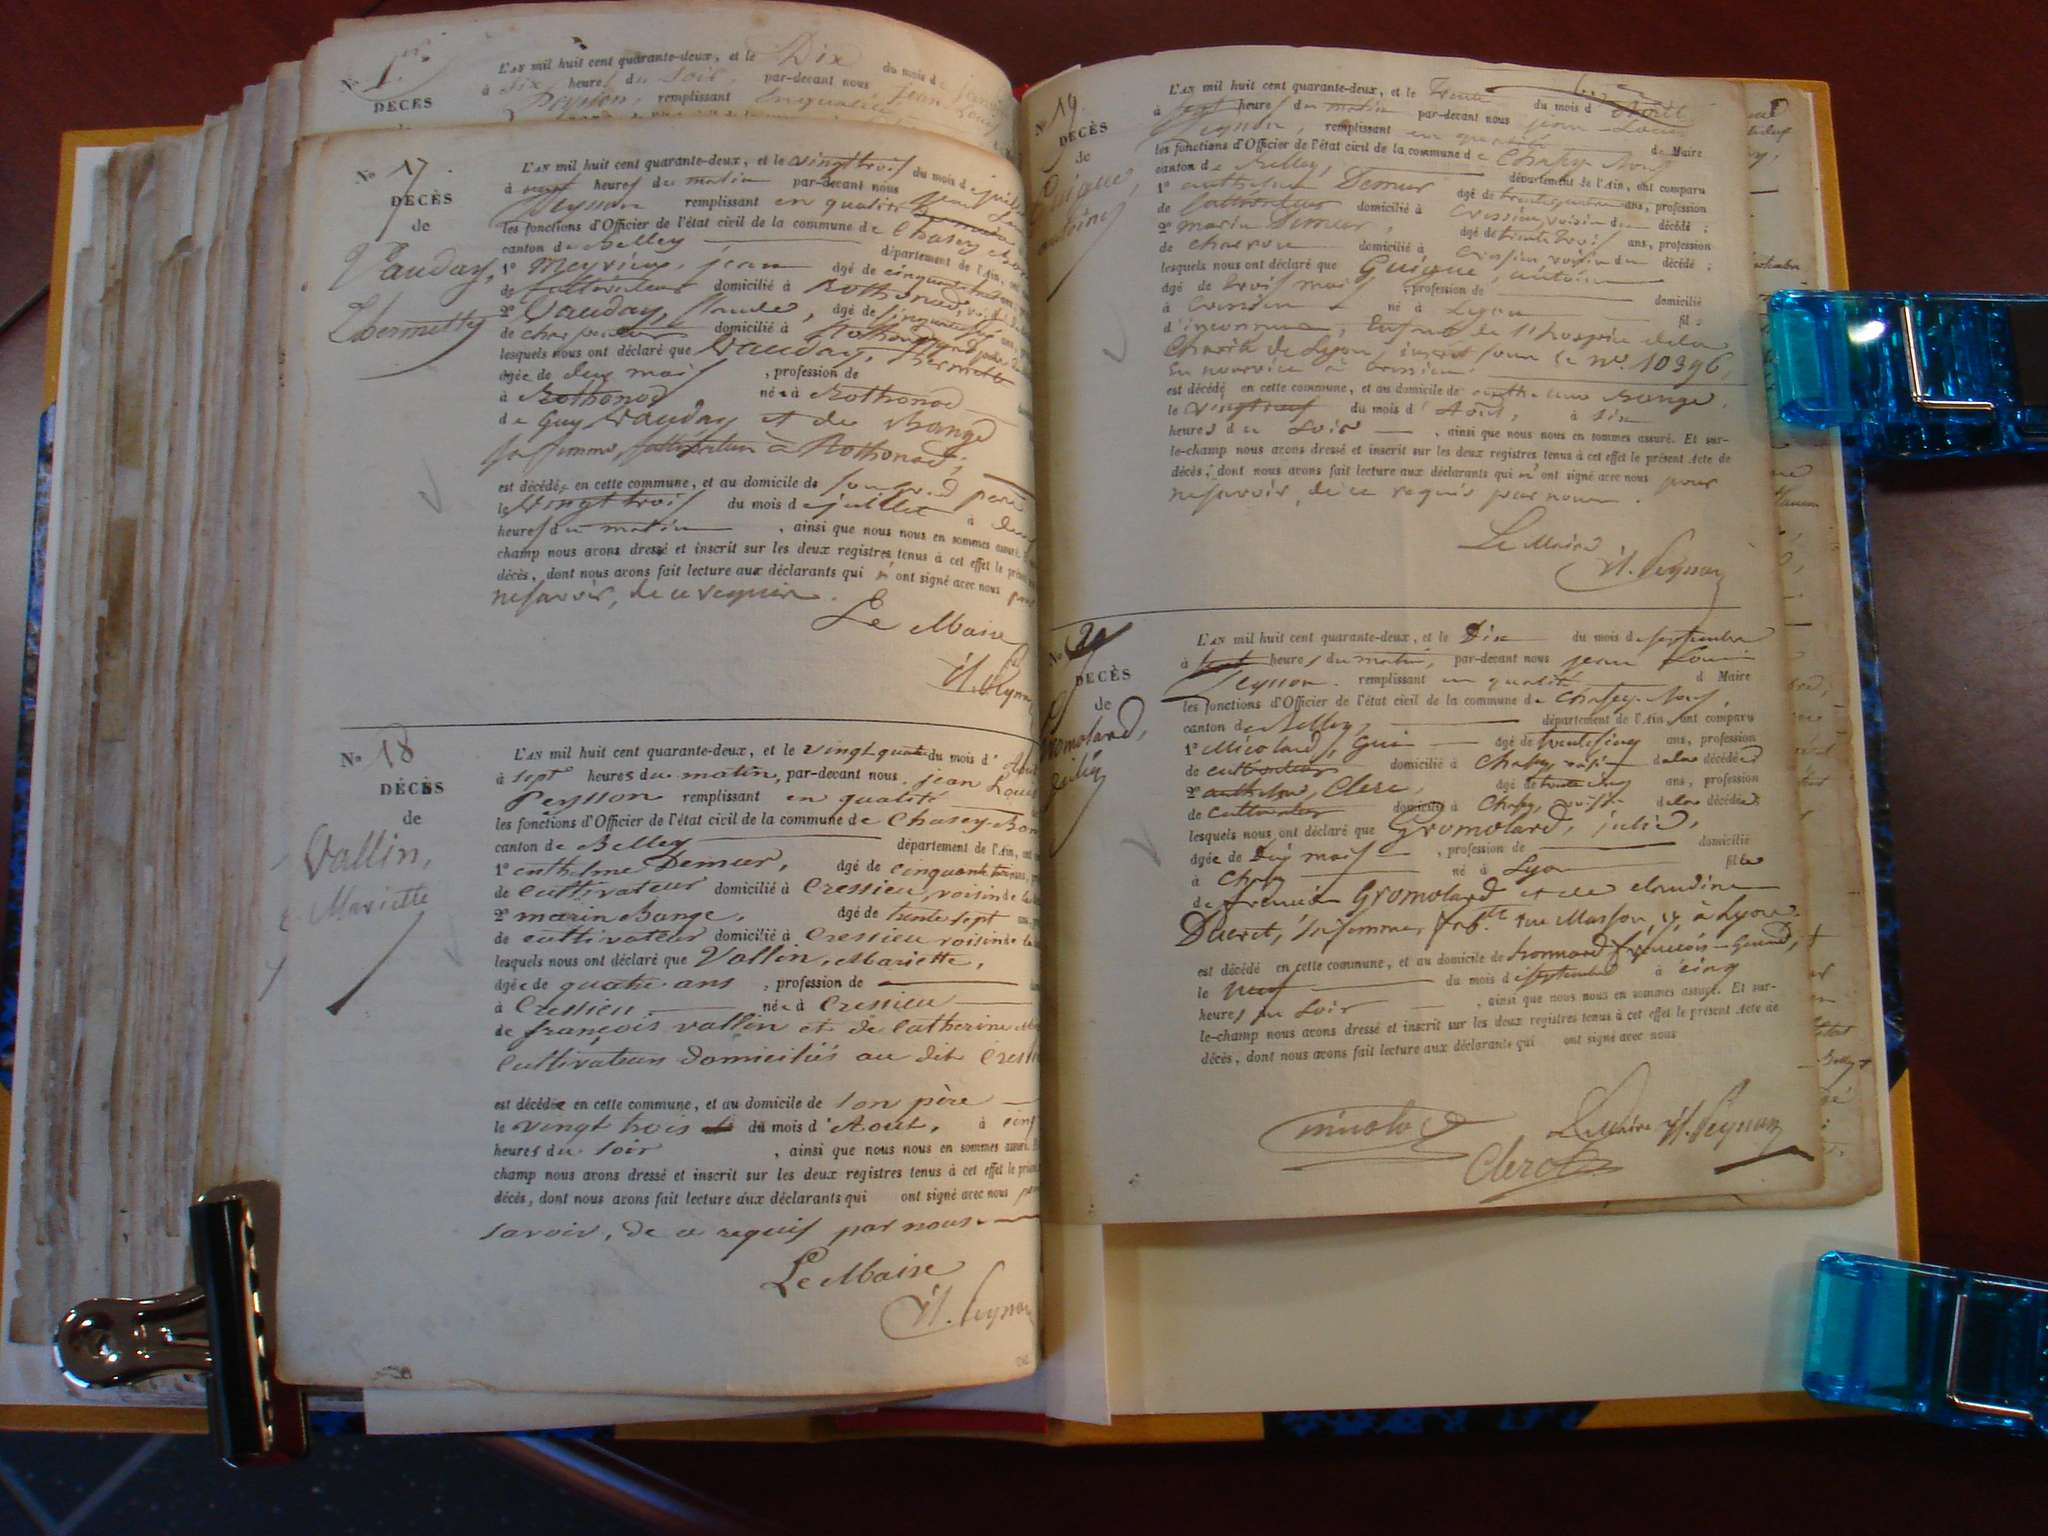 No 1er
DÉCÈS
L'AN mil huit cent quarante-deux, et le Dix du mois de
à six heures du soir, par-devant nous jean Louis
Peysson, remplissant en qualité
No 17
DÉCÈS
de
Vauday,
thermette
L'AN mil huit cent quarante-deux, et le vingt trois du mois de juillet
à heures du matin par-devant nous jean
Peysson remplissant en qualité
les fonctions d'Officier de l'état civil de la commune de Chasey
canton de Belley département de l'Ain,
1º Meyrieux, jean âgé de cinquante
de cultivateur domicilié à Rothonod,
2º Vauday, Claude, âgé de cinquante
de domicilié à Rothonod
lesquels nous ont déclaré que Vauday, thermette
âgée de deux mois , profession de
à Rothonod née à Rothonod
de Guy Vauday et de Bange
sa femme, cultivateur à Rothonod,
est décédée en cette commune, et au domicile de son père
le vingt trois du mois de juillet à
heures du matin , ainsi que nous nous en sommes assuré.
champ nous avons dressé et inscrit sur les deux registres tenus à cet effet le
décès, dont nous avons fait lecture aux déclarants qui n'ont signé avec nous pour
ne savoir, de ce requis.
Le Maire
J. L. Peysson
No 18
DÉCÈS
de
Vallin,
Mariette
L'AN mil huit cent quarante-deux, et le vingt quatre du mois d'Août
à sept heures du matin, par-devant nous jean Louis
Peysson remplissant en qualité
les fonctions d'Officier de l'état civil de la commune de Chasey-Bons
canton de Belley département de l'Ain,
1º enthelme Demeur, âgé de cinquante
de cultivateur domicilié à Cressieu, voisin de la
2º marin Bange, âgé de trente sept
de cultivateur domicilié à Cressieu voisin de la
lesquels nous ont déclaré que Vallin, Mariette,
âgée de quatre ans , profession de
à Cressieu née à Cressieu
de françois vallin et de Catherine
cultivateurs domiciliés au dit
est décédée en cette commune, et au domicile de son père
le vingt trois du mois d'Aout, à cinq
heures du soir , ainsi que nous nous en sommes assuré.
champ nous avons dressé et inscrit sur les deux registres tenus à cet effet le
décès, dont nous avons fait lecture aux déclarants qui ont signé avec nous
savoir, de ce requis par nous.
Le Maire
J. L. Peysson
No 19
DÉCÈS
de
Guigue,
antoine
L'AN mil huit cent quarante-deux, et le trente du mois d'Août
à sept heures du matin par-devant nous jean Louis
Peysson, remplissant en qualité de Maire
les fonctions d'Officier de l'état civil de la commune de Chasey-Bons
canton de Belley, département de l'Ain, ont comparu
1º enthelme Demeur âgé de ans, profession
de cultivateur domicilié à Cressieu, voisin du décédé ;
2º marin Demeur, âgé de trente trois ans, profession
de domicilié à Cressieu voisin du décédé ;
lesquels nous ont déclaré que Guigue, antoine
âgé de trois mois , profession de domicilié
à Cressieu né à Lyon fils
d'inconnus, Enfant de l'hospice de la
Charité de Lyon, inscrit sous le nº. 10396,
en nourrice à Cressieu.
est décédé en cette commune, et au domicile de enthelme Bange.
le vingt neuf du mois d'Août, à six
heures du soir , ainsi que nous nous en sommes assuré. Et sur-
le-champ nous avons dressé et inscrit sur les deux registres tenus à cet effet le présent Acte de
décès, dont nous avons fait lecture aux déclarants qui n'ont signé avec nous pour
ne savoir, de ce requis par nous.
Le Maire
J. L. Peysson
No 20
DÉCÈS
de
Gromolard,
julie
L'AN mil huit cent quarante-deux, et le Dix du mois de septembre
à sept heures du matin, par-devant nous jean Louis
Peysson remplissant en qualité d Maire
les fonctions d'Officier de l'état civil de la commune de Chasey-Bons,
canton de Belley, département de l'Ain ont comparu
1º Micolard, Gui âgé de trente cinq ans, profession
de cultivateur domicilié à Chasey voisin de la décédée
2º anthelme, Clerc, âgé de trente cinq ans, profession
de cultivateur domicilié à Chasey, voisin de la décédée,
lesquels nous ont déclaré que Gromolard, julie,
âgée de Dix mois , profession de domicilié
à Chasey né à Lyon fille
de françois Gromolard et de claudine
Ducret, sa femme, fabts rue Masson 14 à Lyon.
est décédé en cette commune, et au domicile de Bonnard françois
le neuf du mois de septembre à cinq
heures du soir , ainsi que nous nous en sommes assuré. Et sur-
le-champ nous avons dressé et inscrit sur les deux registres tenus à cet effet le présent Acte de
décès, dont nous avons fait lecture aux déclarants qui ont signé avec nous
Le Maire J. L. Peysson
Clerc